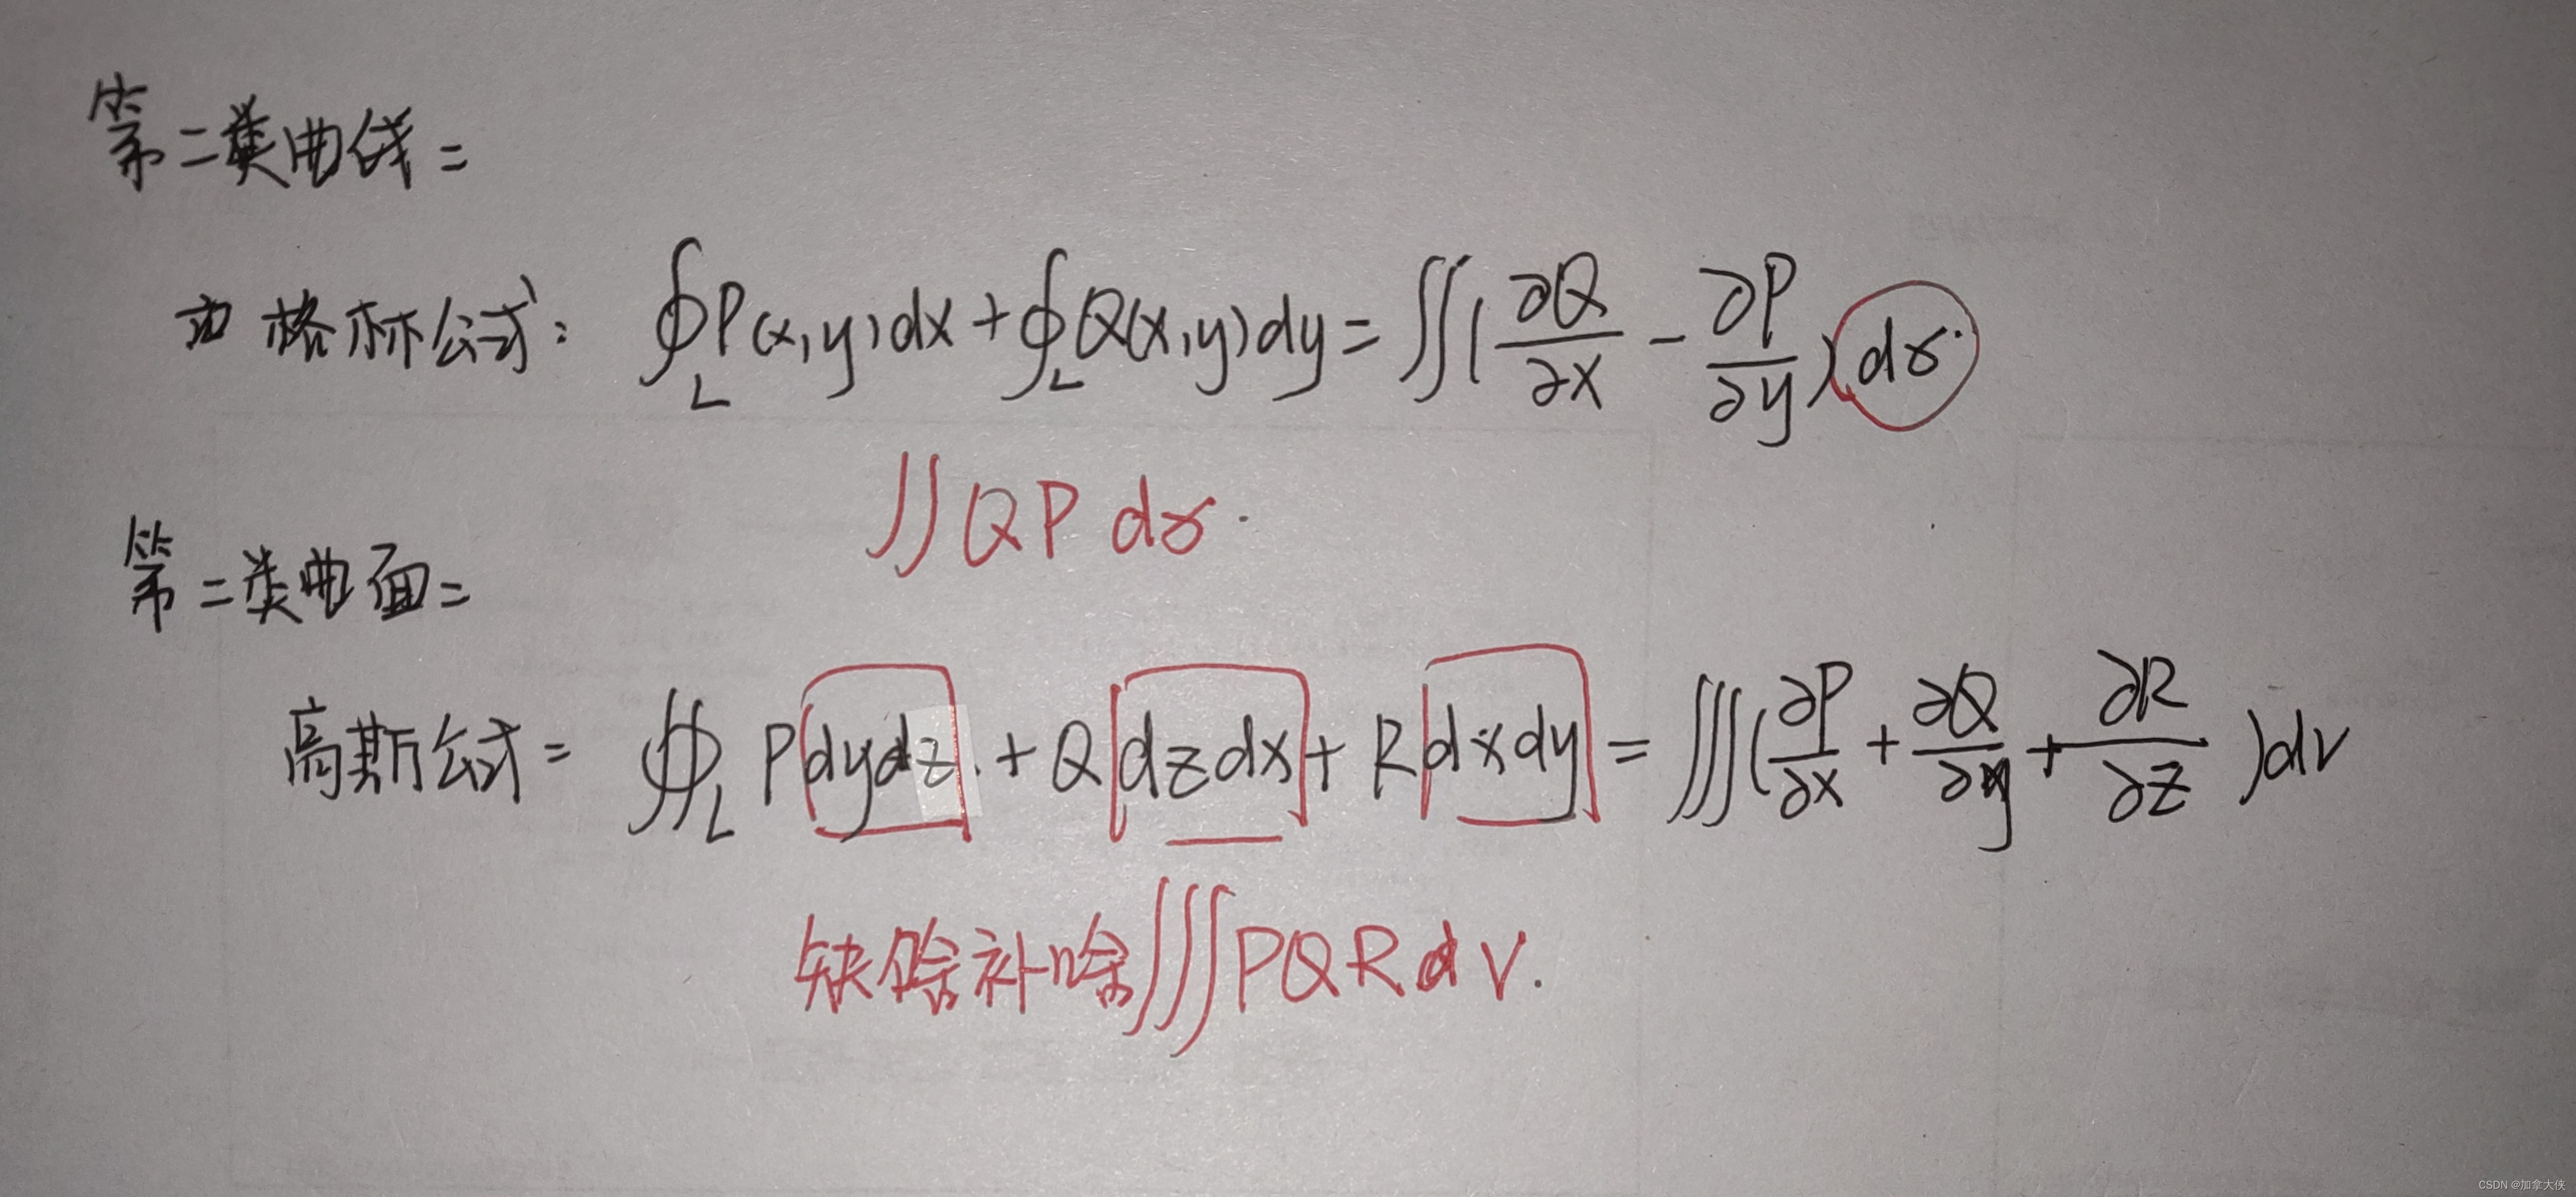 第二类曲线=
格林公式: ∮_L P(x,y)dx+∮_L Q(x,y)dy=∬(∂Q/∂x - ∂P/∂y)dσ.
∬QP dσ.
第二类曲面=
高斯公式= ∯_L Pdydz.+Qdzdx+Rdxdy=∭(∂P/∂x+∂Q/∂y+∂R/∂z)dv
缺啥补啥∭PQRdV.
CSDN @加拿大侠